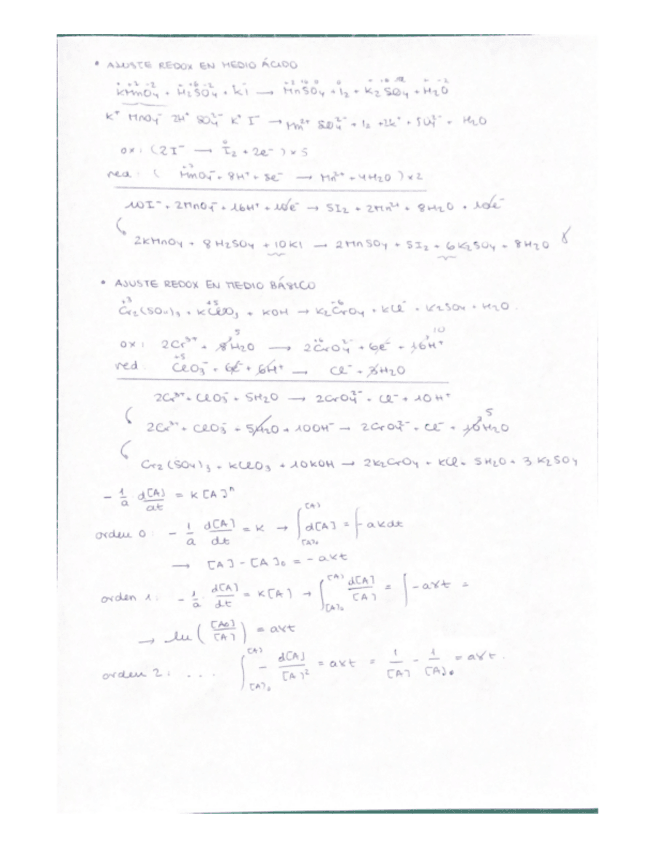 • AJUSTE REDOX EN MEDIO ÁCIDO
KMnO4 + H2SO4 + KI → MnSO4 + I2 + K2SO4 + H2O
K+ MnO4- 2H+ SO4^2- K+ I- → Mn2+ SO4^2- + I2 + 2K+ + SO4^2- + H2O
ox: (2I- → I2 + 2e-) x 5
red: ( MnO4- + 8H+ + 5e- → Mn2+ + 4H2O ) x 2
10I- + 2MnO4- + 16H+ + 10e- → 5I2 + 2Mn2+ + 8H2O + 10e-
2KMnO4 + 8H2SO4 + 10KI → 2MnSO4 + 5I2 + 6K2SO4 + 8H2O
• AJUSTE REDOX EN MEDIO BÁSICO
Cr2(SO4)3 + KClO3 + KOH → K2CrO4 + KCl + K2SO4 + H2O
ox: 2Cr3+ + 8H2O 5 → 2CrO4^2- + 6e- + 16H+ 10
red: ClO3- + 6e- + 6H+ → Cl- + 3H2O
2Cr3+ + ClO3- + 5H2O → 2CrO4^2- + Cl- + 10H+
2Cr3+ + ClO3- + 5H2O + 10OH- → 2CrO4^2- + Cl- + 10H2O 5
Cr2(SO4)3 + KClO3 + 10KOH → 2K2CrO4 + KCl + 5H2O + 3K2SO4
- 1/a d[A]/dt = K[A]^n
orden 0: - 1/a d[A]/dt = K → ∫[A]0[A] d[A] = ∫ -aKdt
→ [A] - [A]0 = -aKt
orden 1: - 1/a d[A]/dt = K[A] → ∫[A]0[A] d[A]/[A] = ∫ -aKt =
→ ln([A0]/[A]) = aKt
orden 2: ... ∫[A]0[A] - d[A]/[A]^2 = aKt = 1/[A] - 1/[A]0 = aKt.